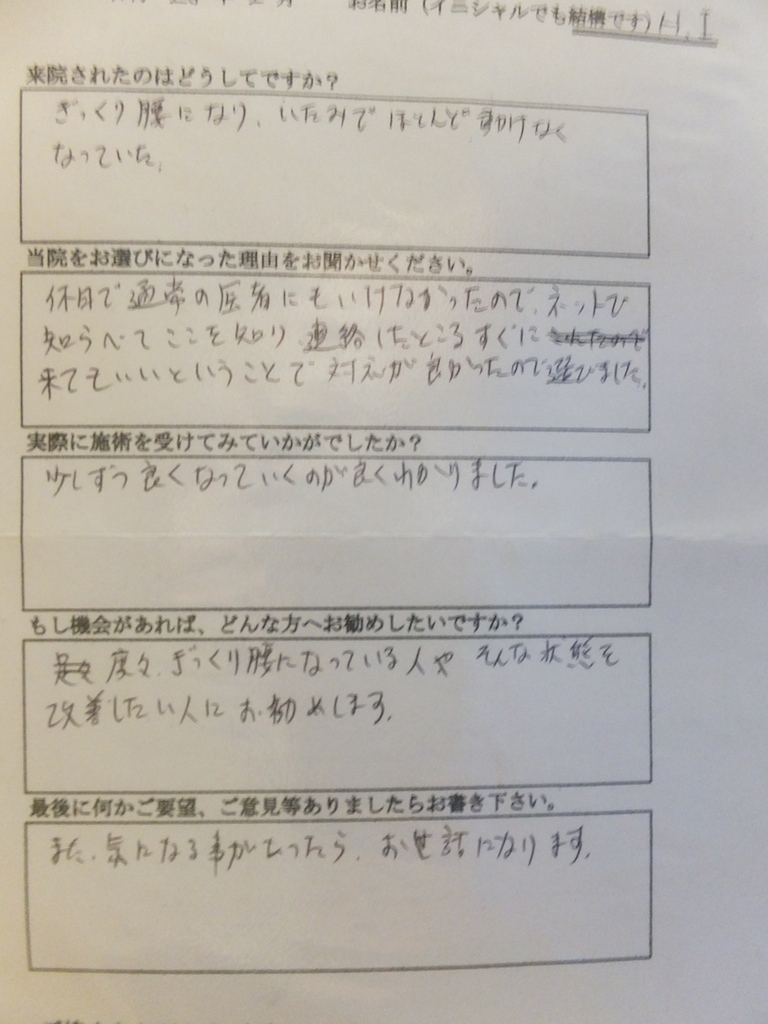 お名前（イニシャルでも結構です）H.I
来院されたのはどうしてですか？
ぎっくり腰になり、いたみでほとんど動けなく
なっていた。
当院をお選びになった理由をお聞かせください。
休日で通常の医者にもいけなかったので、ネットで
知らべてここを知り、連絡したところすぐに
来てもいいということで対応が良かったので選びました。
実際に施術を受けてみていかがでしたか？
少しずつ良くなっていくのが良くわかりました。
もし機会があれば、どんな方へお勧めしたいですか？
度々、ぎっくり腰になっている人や そんな状態を
改善したい人にお勧めします。
最後に何かご要望、ご意見等ありましたらお書き下さい。
また、気になる事がもったら、お世話になります。